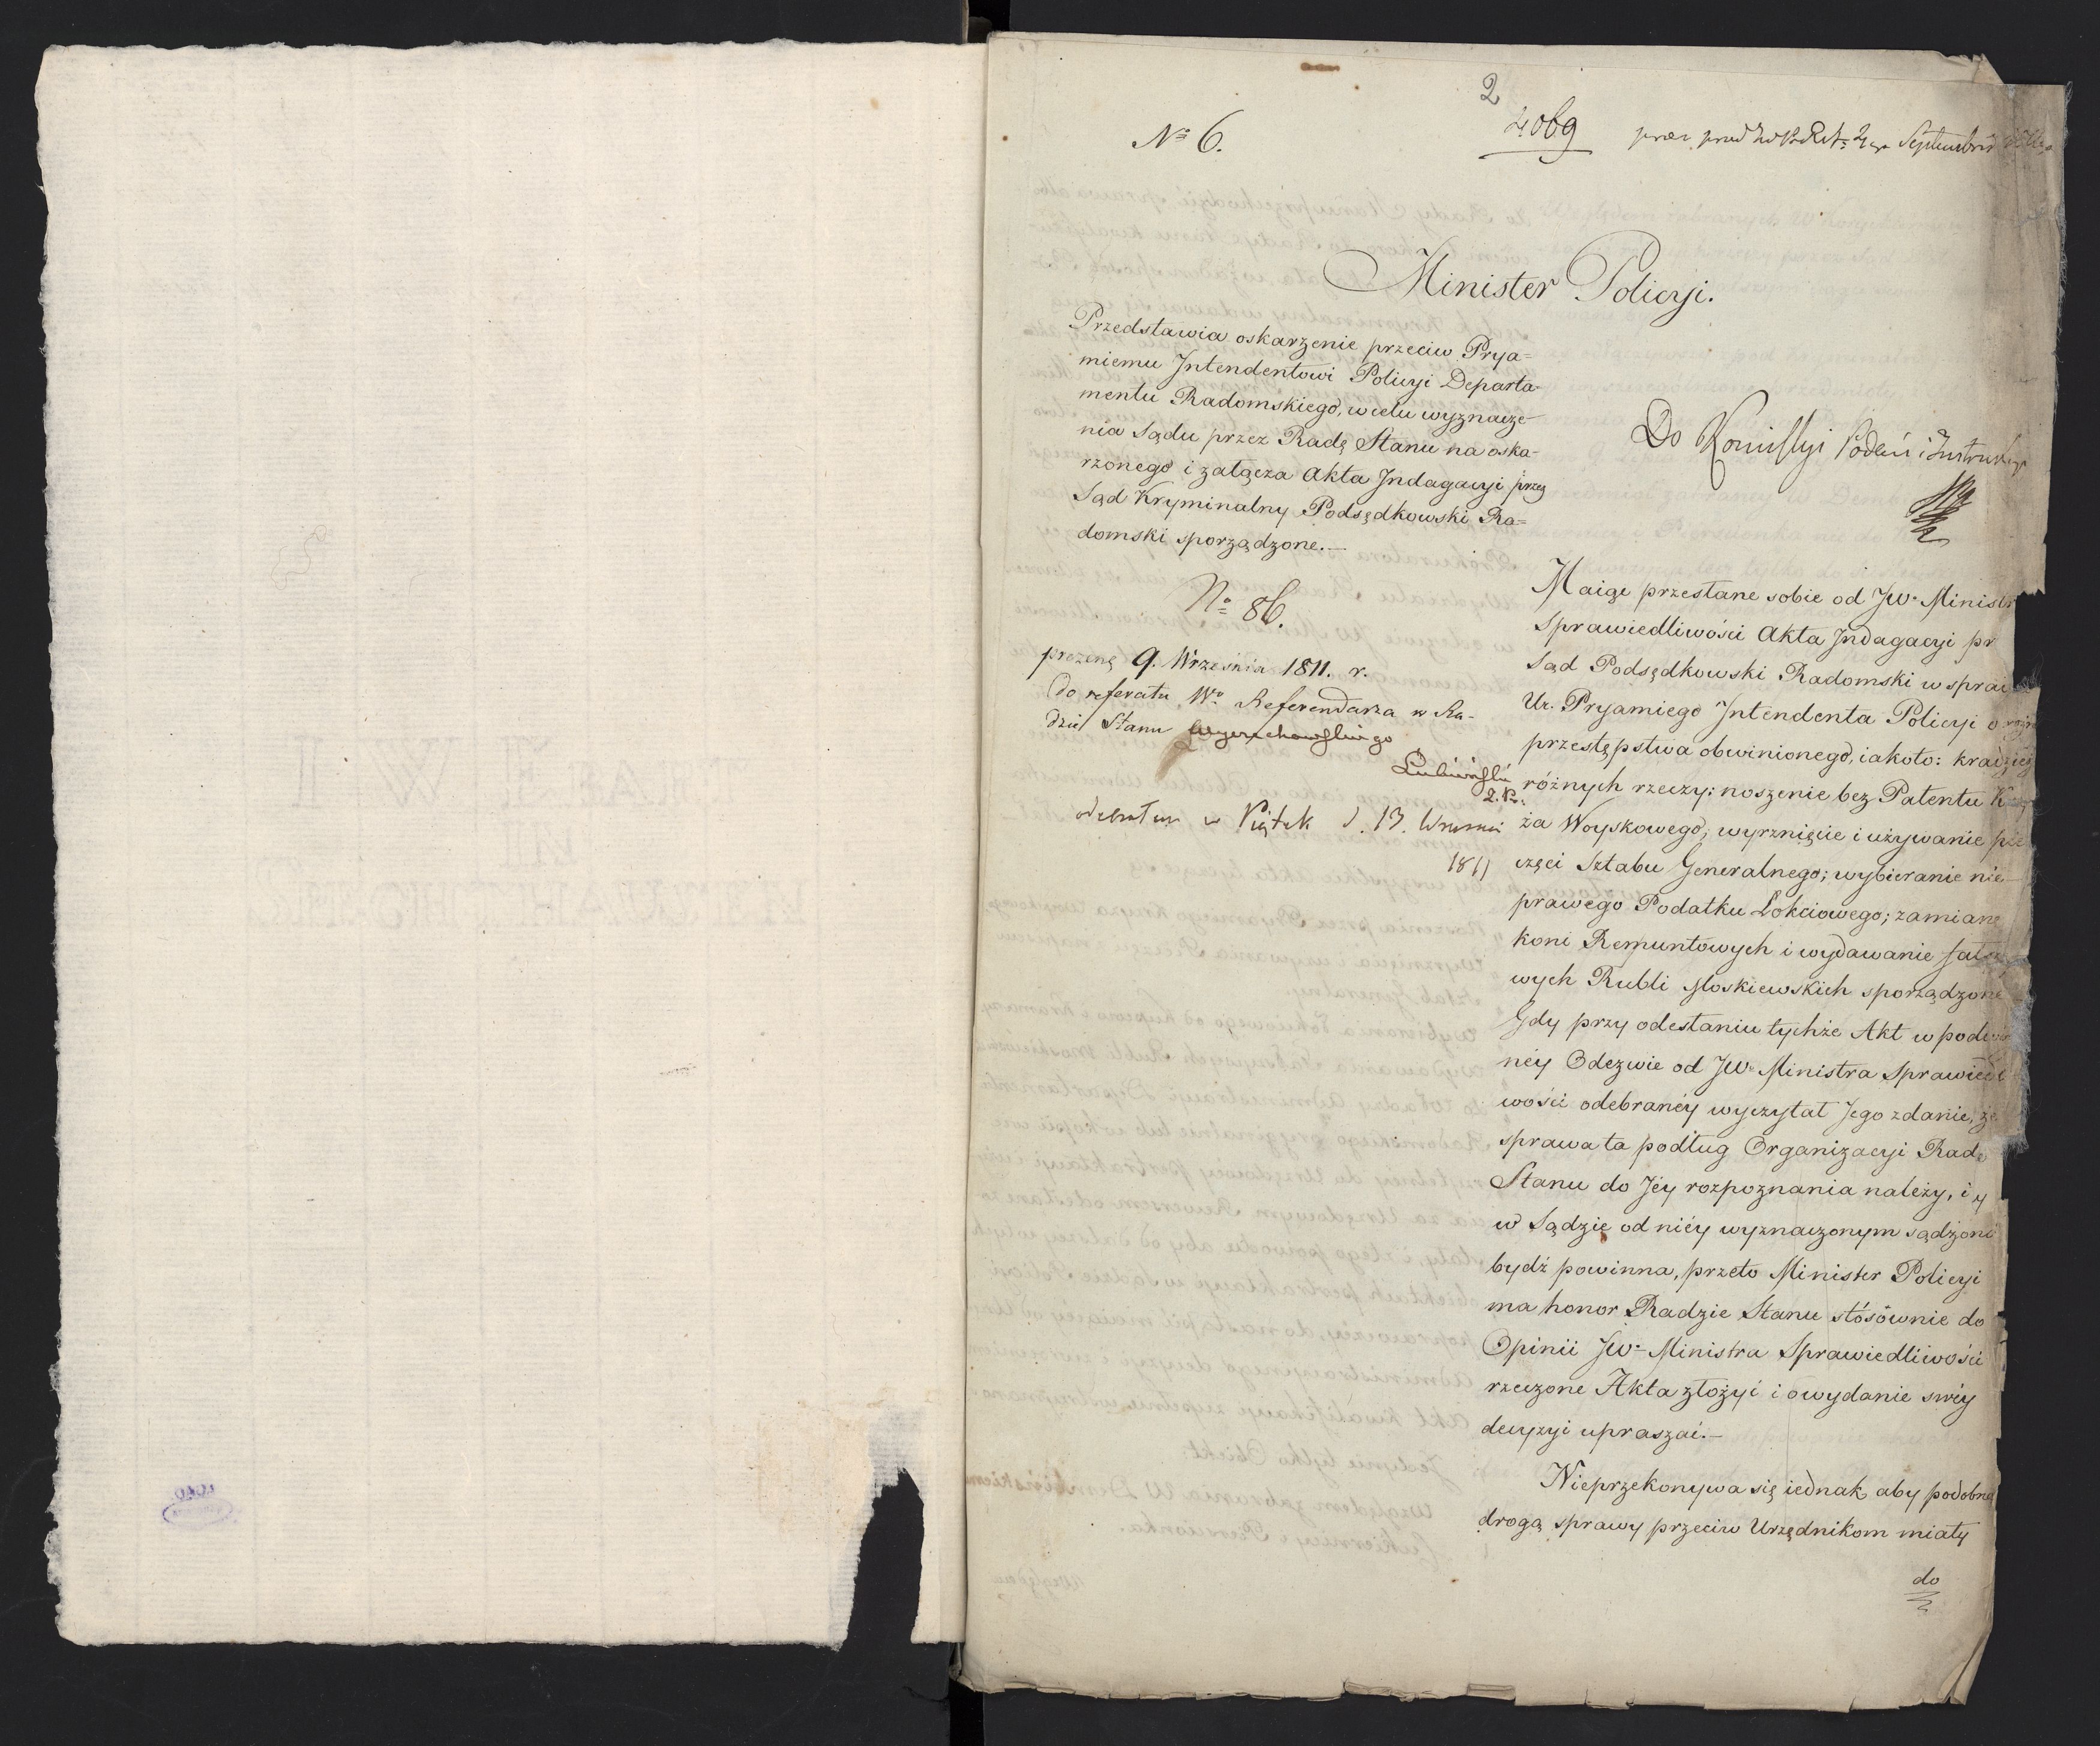 2
№ 6.
4069
Septembris
Minister Policyi.
Przedstawia oskarzenie przeciw Prya=
miemu Intendentowi Policyi Departa-
mentu Radomskiego, w celu wyznacze-
nia Sądu przez Radę Stanu na oska-
rzonego i załącza Akta Indagacyi przez
Sąd Kryminalny Podsędkowski Ra=
domski sporządzone.—
Do Kommissyi Podań i Instrukcyi
№ 86.
prezene 9. Września 1811. r.
do referatu Wo Referendarza w Ra-
dzie Stanu
Lubiński
odebrałem w Piątek d. 13. Wrzesnia
1811
Maiąc przesłane sobie od JW. Ministr
Sprawiedliwości Akta Indagacyi pr
Sąd Podsędkowski Radomski w spra
Ur. Pryamiego Intendenta Policyi o
przestępstwa obwinionego, iakoto: kradzież
różnych rzeczy; noszenie bez Patentu K
ża Woyskowego; wyrznięcie i używanie pie
częci Sztabu Generalnego; wybieranie nie-
prawego Podatku Łokciowego; zamianę
koni Remuntowych i wydawanie fałsz
wych Rubli Moskiewskich sporządzone
Gdy przy odesłaniu tychże Akt w
néy Odezwie od JW. Ministra Sprawiedl
wości odebranéy wyczytał Jego zdanie, że
sprawa ta podług Organizacyi Rady
Stanu do Jéy rozpoznania należy, i
w Sądzie od niéy wyznaczonym sądzoną
bydź powinna, przeto Minister Policyi
ma honor Radzie Stanu stósównie do
Opinii JW. Ministra Sprawiedliwości
rzeczone Akta złożyć i o wydanie swéy
decyzyi upraszać.—
Nieprzekonywa się iednak aby podobną
drogą sprawy przeciw Urzędnikom miały
do